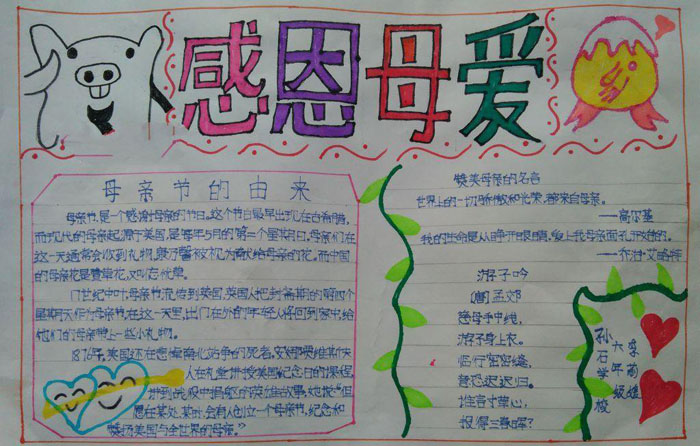 感恩母爱
母亲节的由来
母亲节,是一个感谢母亲的节日。这个节日最早出现在古希腊,
而现代的母亲起源于美国,是每年5月的第二个星期日。母亲们在
这一天通常会收到礼物,康乃馨被视为献给母亲的花,而中国
的母亲花是萱草花,又叫忘忧草。
17世纪中叶母亲节流传到英国,英国人把封斋期的第四个
星期天作为母亲节,在这一天里,出门在外的年轻人将回到家中,给
他们的母亲带上一些小礼物。
1876年,美国还在悲悼南北战争的死者,安娜·贾维斯夫
人在礼堂讲授美国纪念日的课程,
讲到战役中捐躯的英雄故事,她说:"但
愿在某处,某时,会有人创立一个母亲节,纪念和
赞扬美国与全世界的母亲。"
赞美母亲的名言
世界上的一切骄傲和光荣,都来自母亲。
——高尔基
我的生命是从睁开眼睛,爱上我母亲面孔开始的。
——乔治·艾略特
游子吟
[唐]孟郊
慈母手中线,
游子身上衣。
临行密密缝,
意恐迟迟归。
谁言寸草心,
报得三春晖?
孙石学校
六年级